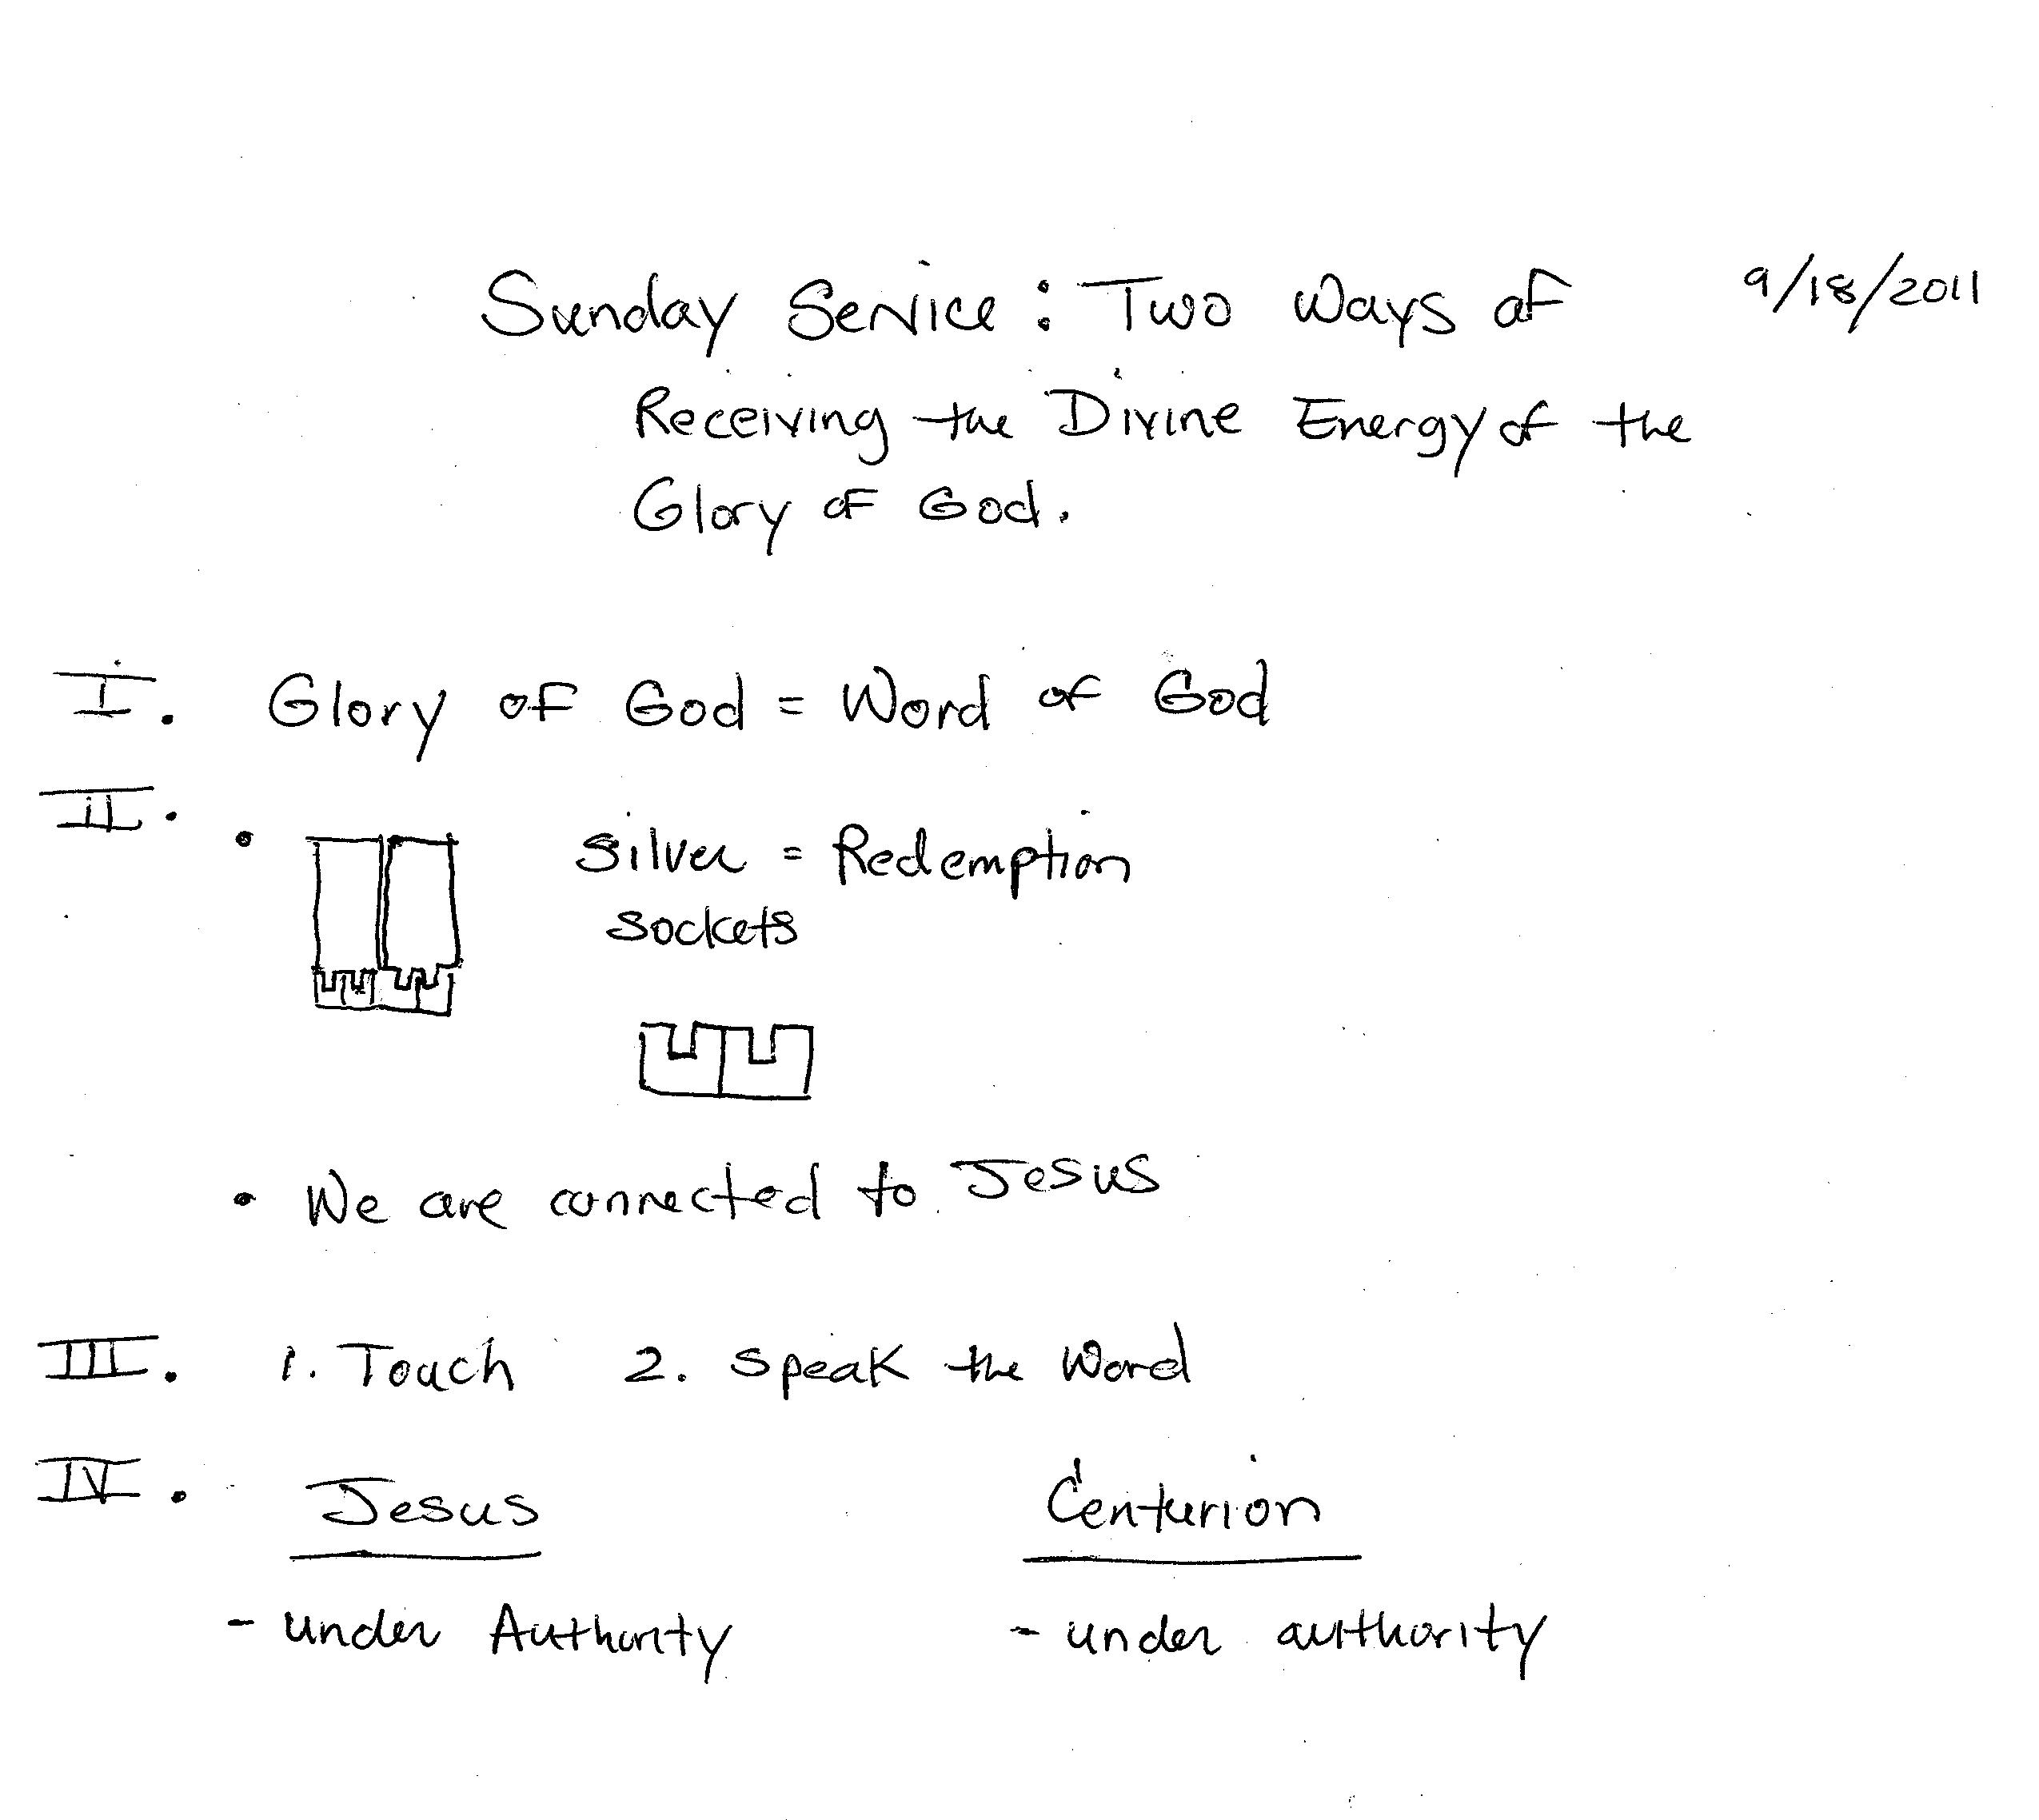 Sunday Service: Two Ways of 9/18/2011
Receiving the Divine Energy of the
Glory of God.
I. Glory of God = Word of God
II. • Silver = Redemption
sockets
• We are connected to Jesus
III. 1. Touch 2. Speak the Word
IV. Jesus Centurion
- under Authority - under authority